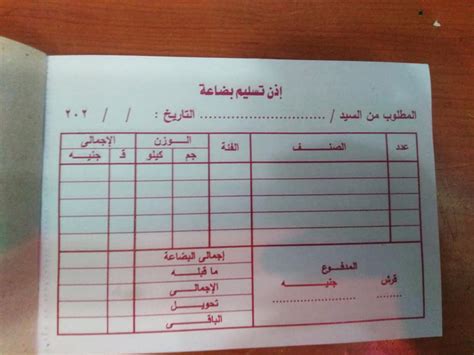 إذن تسليم بضاعة
المطلوب من السيد / .............................. التاريخ : / / ٢٠٢
عدد الصنف الفئة الوزن الإجمالى
جم كيلو قـ جنيه
المدفوع
قرش جنيه
............ ............
إجمالى البضاعة
ما قبله
الإجمالى
تحويل
الباقى